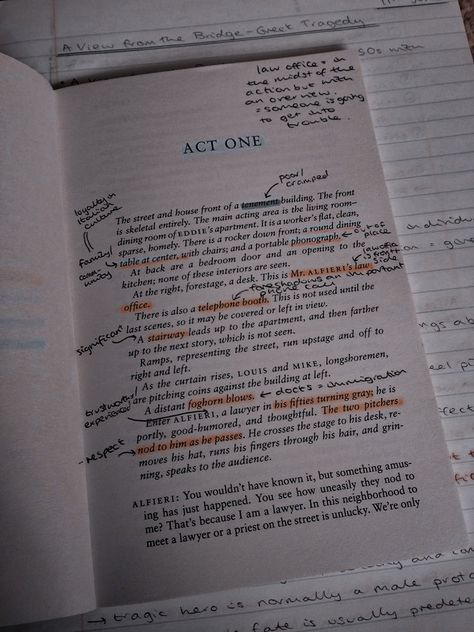 A View from the Bridge - Greek Tragedy
50s with
law office = in
the midst of the
action but with
an overview.
= someone is going
to get into
trouble.
ACT ONE
poor/
cramped
loyalty in
Italian
culture
family/
community
The street and house front of a tenement building. The front
is skeletal entirely. The main acting area is the living room–
dining room of EDDIE's apartment. It is a worker's flat, clean,
sparse, homely. There is a rocker down front; a round dining
table at center, with chairs; and a portable phonograph.
out of
place
At back are a bedroom door and an opening to the
kitchen; none of these interiors are seen.
At the right, forestage, a desk. This is Mr. ALFIERI's law
office.
foreshadows an important
phone call
There is also a telephone booth. This is not used until the
last scenes, so it may be covered or left in view.
significant
A stairway leads up to the apartment, and then farther
up to the next story, which is not seen.
Ramps, representing the street, run upstage and off to
right and left.
As the curtain rises, LOUIS and MIKE, longshoremen,
are pitching coins against the building at left.
A distant foghorn blows.
docks = immigration
trustworthy/
experienced
Enter ALFIERI, a lawyer in his fifties turning gray; he is
portly, good-humored, and thoughtful. The two pitchers
respect
nod to him as he passes. He crosses the stage to his desk, re-
moves his hat, runs his fingers through his hair, and grin-
ning, speaks to the audience.
ALFIERI: You wouldn't have known it, but something amus-
ing has just happened. You see how uneasily they nod to
me? That's because I am a lawyer. In this neighborhood to
meet a lawyer or a priest on the street is unlucky. We're only
→ tragic hero is normally a male
fate is usually